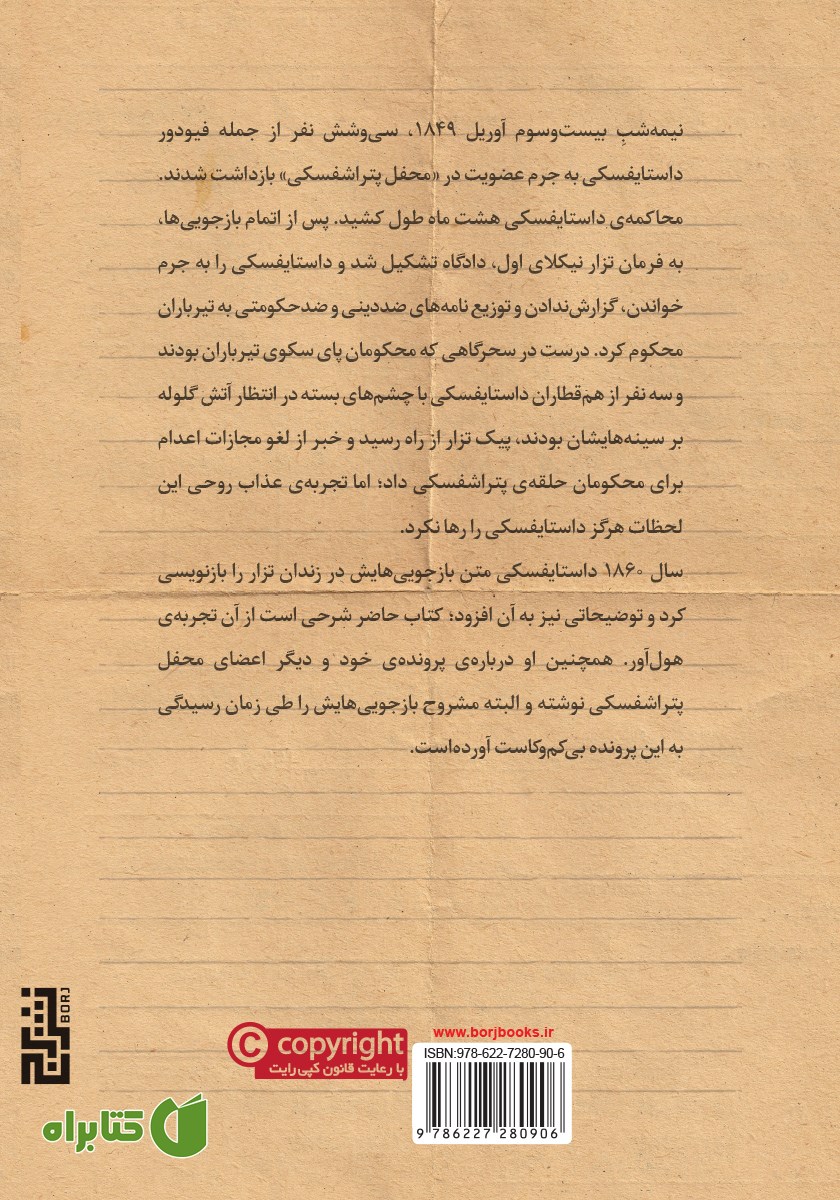 نیمه‌شبِ بیست‌وسوم آوریل ۱۸۴۹، سی‌وشش نفر از جمله فیودور
داستایفسکی به جرم عضویت در «محفل پتراشفسکی» بازداشت شدند.
محاکمه‌ی داستایفسکی هشت ماه طول کشید. پس از اتمام بازجویی‌ها،
به فرمان تزار نیکلای اول، دادگاه تشکیل شد و داستایفسکی را به جرم
خواندن، گزارش‌ندادن و توزیع نامه‌های ضددینی و ضدحکومتی به تیرباران
محکوم کرد. درست در سحرگاهی که محکومان پای سکوی تیرباران بودند
و سه نفر از هم‌قطاران داستایفسکی با چشم‌های بسته در انتظار آتش گلوله
بر سینه‌هایشان بودند، پیک تزار از راه رسید و خبر از لغو مجازات اعدام
برای محکومان حلقه‌ی پتراشفسکی داد؛ اما تجربه‌ی عذاب روحی این
لحظات هرگز داستایفسکی را رها نکرد.
سال ۱۸۶۰ داستایفسکی متن بازجویی‌هایش در زندان تزار را بازنویسی
کرد و توضیحاتی نیز به آن افزود؛ کتاب حاضر شرحی است از آن تجربه‌ی
هول‌آور. همچنین او درباره‌ی پرونده‌ی خود و دیگر اعضای محفل
پتراشفسکی نوشته و البته مشروح بازجویی‌هایش را طی زمان رسیدگی
به این پرونده بی‌کم‌وکاست آورده‌است.
برج
BORJ
© copyright
با رعایت قانون کپی‌رایت
www.borjbooks.ir
ISBN:978-622-7280-90-6
9 786227 280906
کتابراه